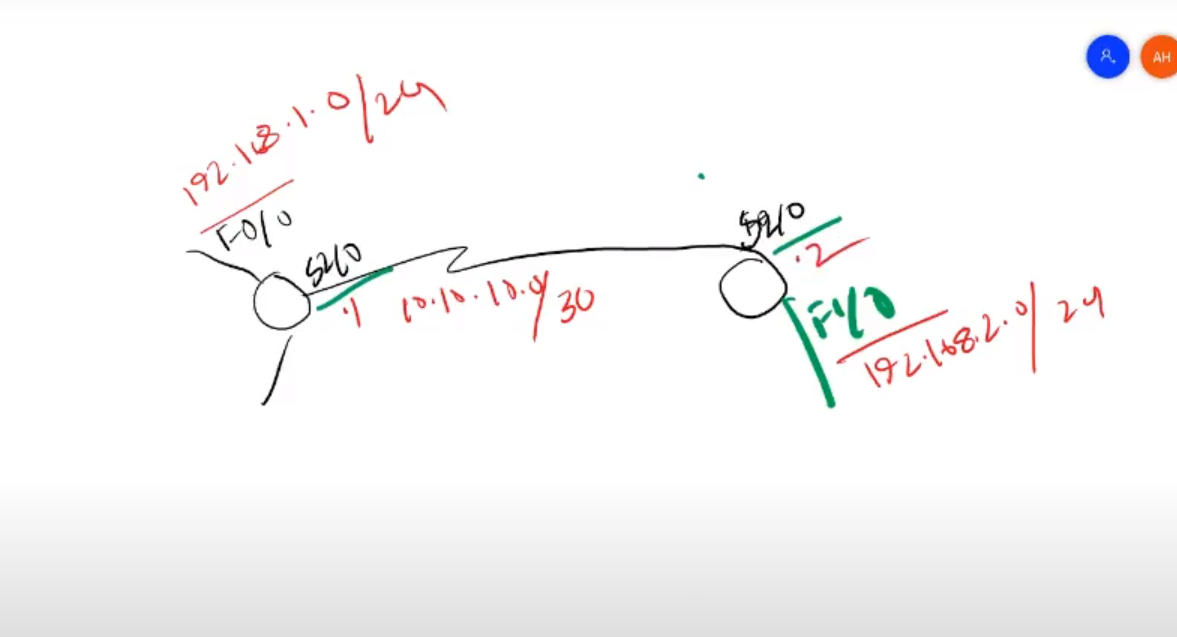 AH
192.168.1.0/24
F0/0
S2/0
S2/0
.2
.1
10.10.10.0/30
F1/0
192.168.2.0/24